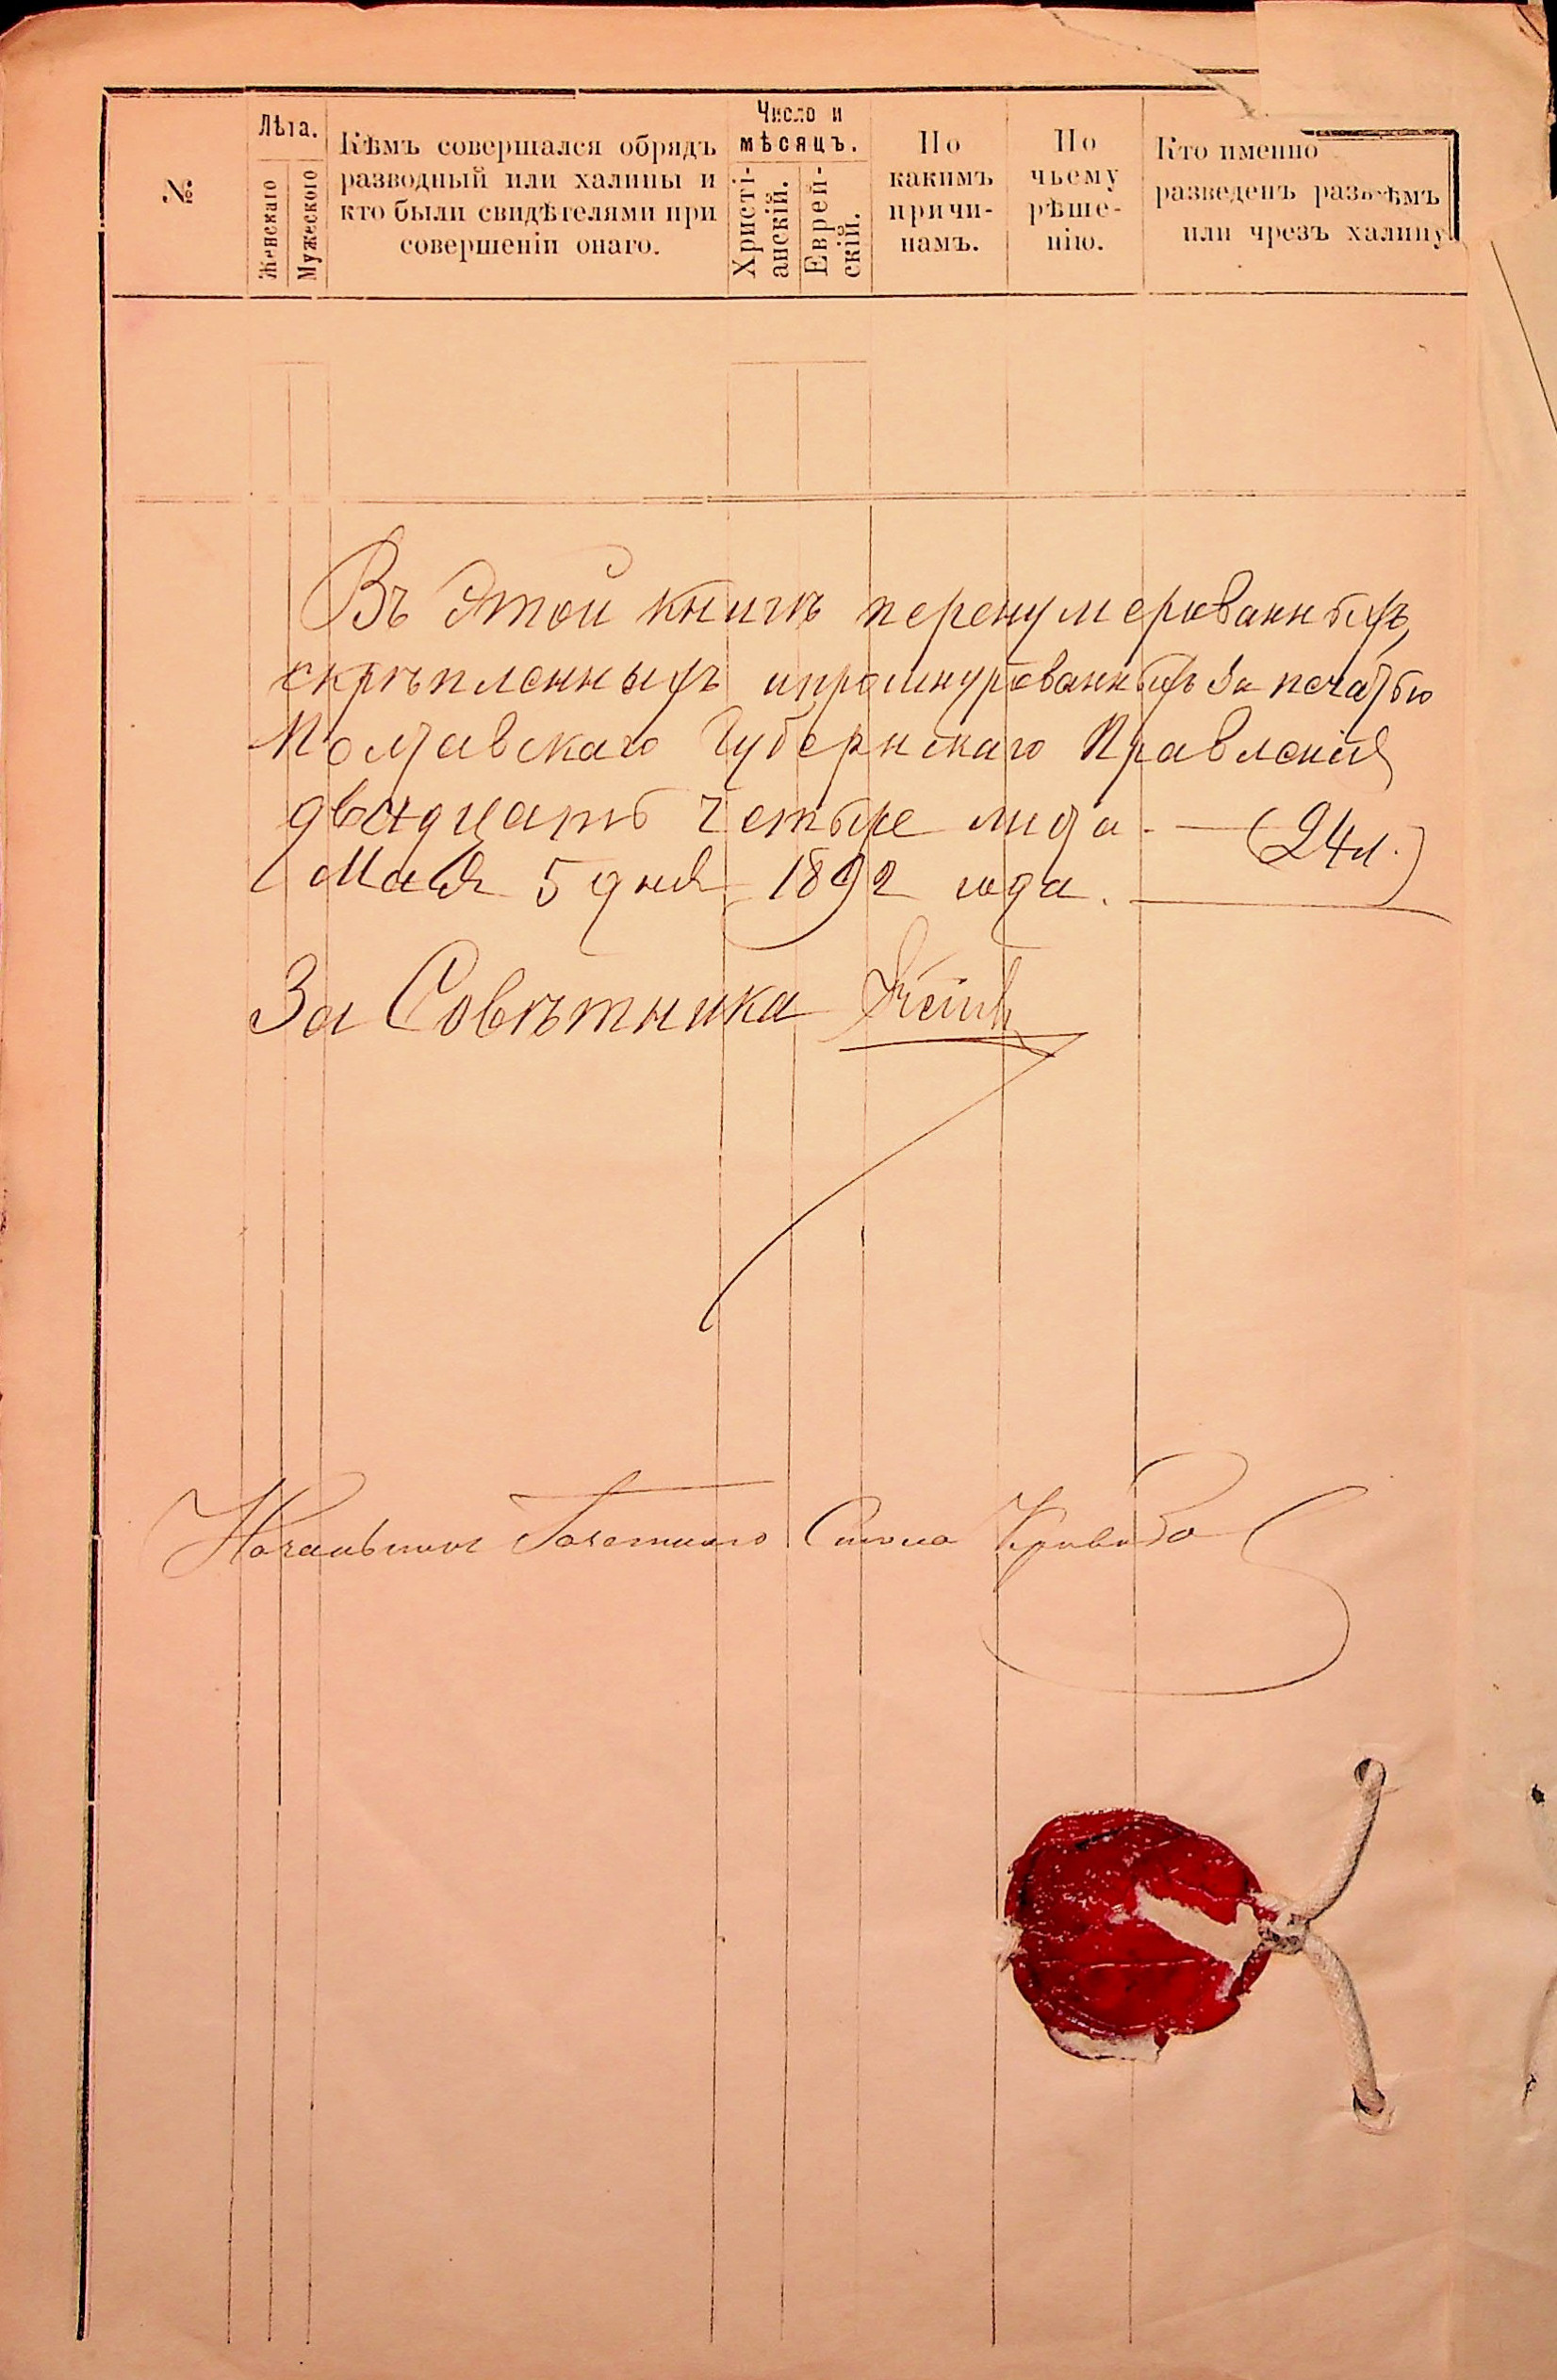 №
Лѣта.
Женскаго
Мужескаго
Кѣмъ совершался обрядъ
разводный или халицы и
кто были свидѣтелями при
совершеніи онаго.
Число и
мѣсяцъ.
Христі-
анскій.
Еврей-
скій.
По
какимъ
причи-
намъ.
По
чьему
рѣше-
нію.
Кто именно
разведенъ
или чрезъ халицу
Въ этой книгѣ перенумерованныхъ,
скрѣпленныхъ и прошнурованныхъ за печатью
Полтавскаго Губернскаго Правленія
двадцать четыре листа. — (24 л.)
Мая 5 дня 1892 года.
За Совѣтника
Начальникъ Газетнаго Стола